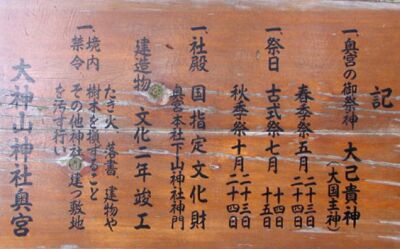 記
一、奥宮の御祭神 大己貴神
(大国主神)
春季祭五月 二十三日
二十四日
一、祭日 古式祭七月 十四日
十五日
秋季祭十月 二十三日
二十四日
一、社殿 国指定文化財
奥宮本社下山神社神門
建造物 文化二年竣工
一、境内禁令
たき火、落書、建物や
樹木を損すること
その他神社の建つ敷地
を汚す行い
大神山神社奥宮